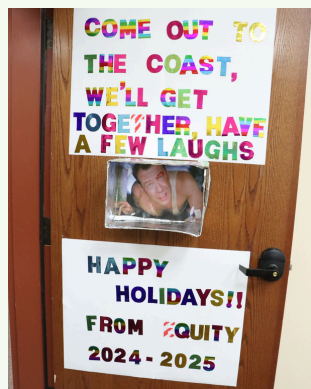 COME OUT TO
THE COAST,
WE'LL GET
TOGETHER, HAVE
A FEW LAUGHS
HAPPY
HOLIDAYS!!
FROM EQUITY
2024-2025